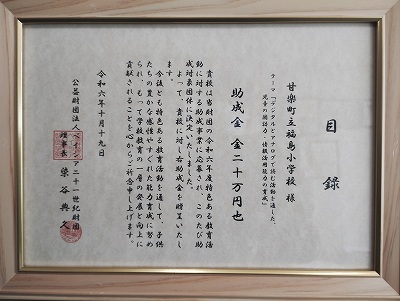 目録
甘楽町立福島小学校 様
テーマ「デジタルとアナログで読む活動を通した、
児童の国語力・情報活用能力の育成」
助成金 金二十万円也
貴校は当財団の令和六年度特色ある教育活
動に対する助成事業に応募され、このたび助
成対象団体に決定いたしました。
よって、貴校に対し右助成金を贈呈いたし
ます。
今後とも特色ある教育活動を通して、子供
たちの豊かな感性やすぐれた能力育成に努め
られ、もって学校教育の一層の発展と向上に
貢献されることを心からご祈念申し上げます。
令和六年十月十九日
公益財団法人ベイシア二十一世紀財団
理事長 栗谷典久